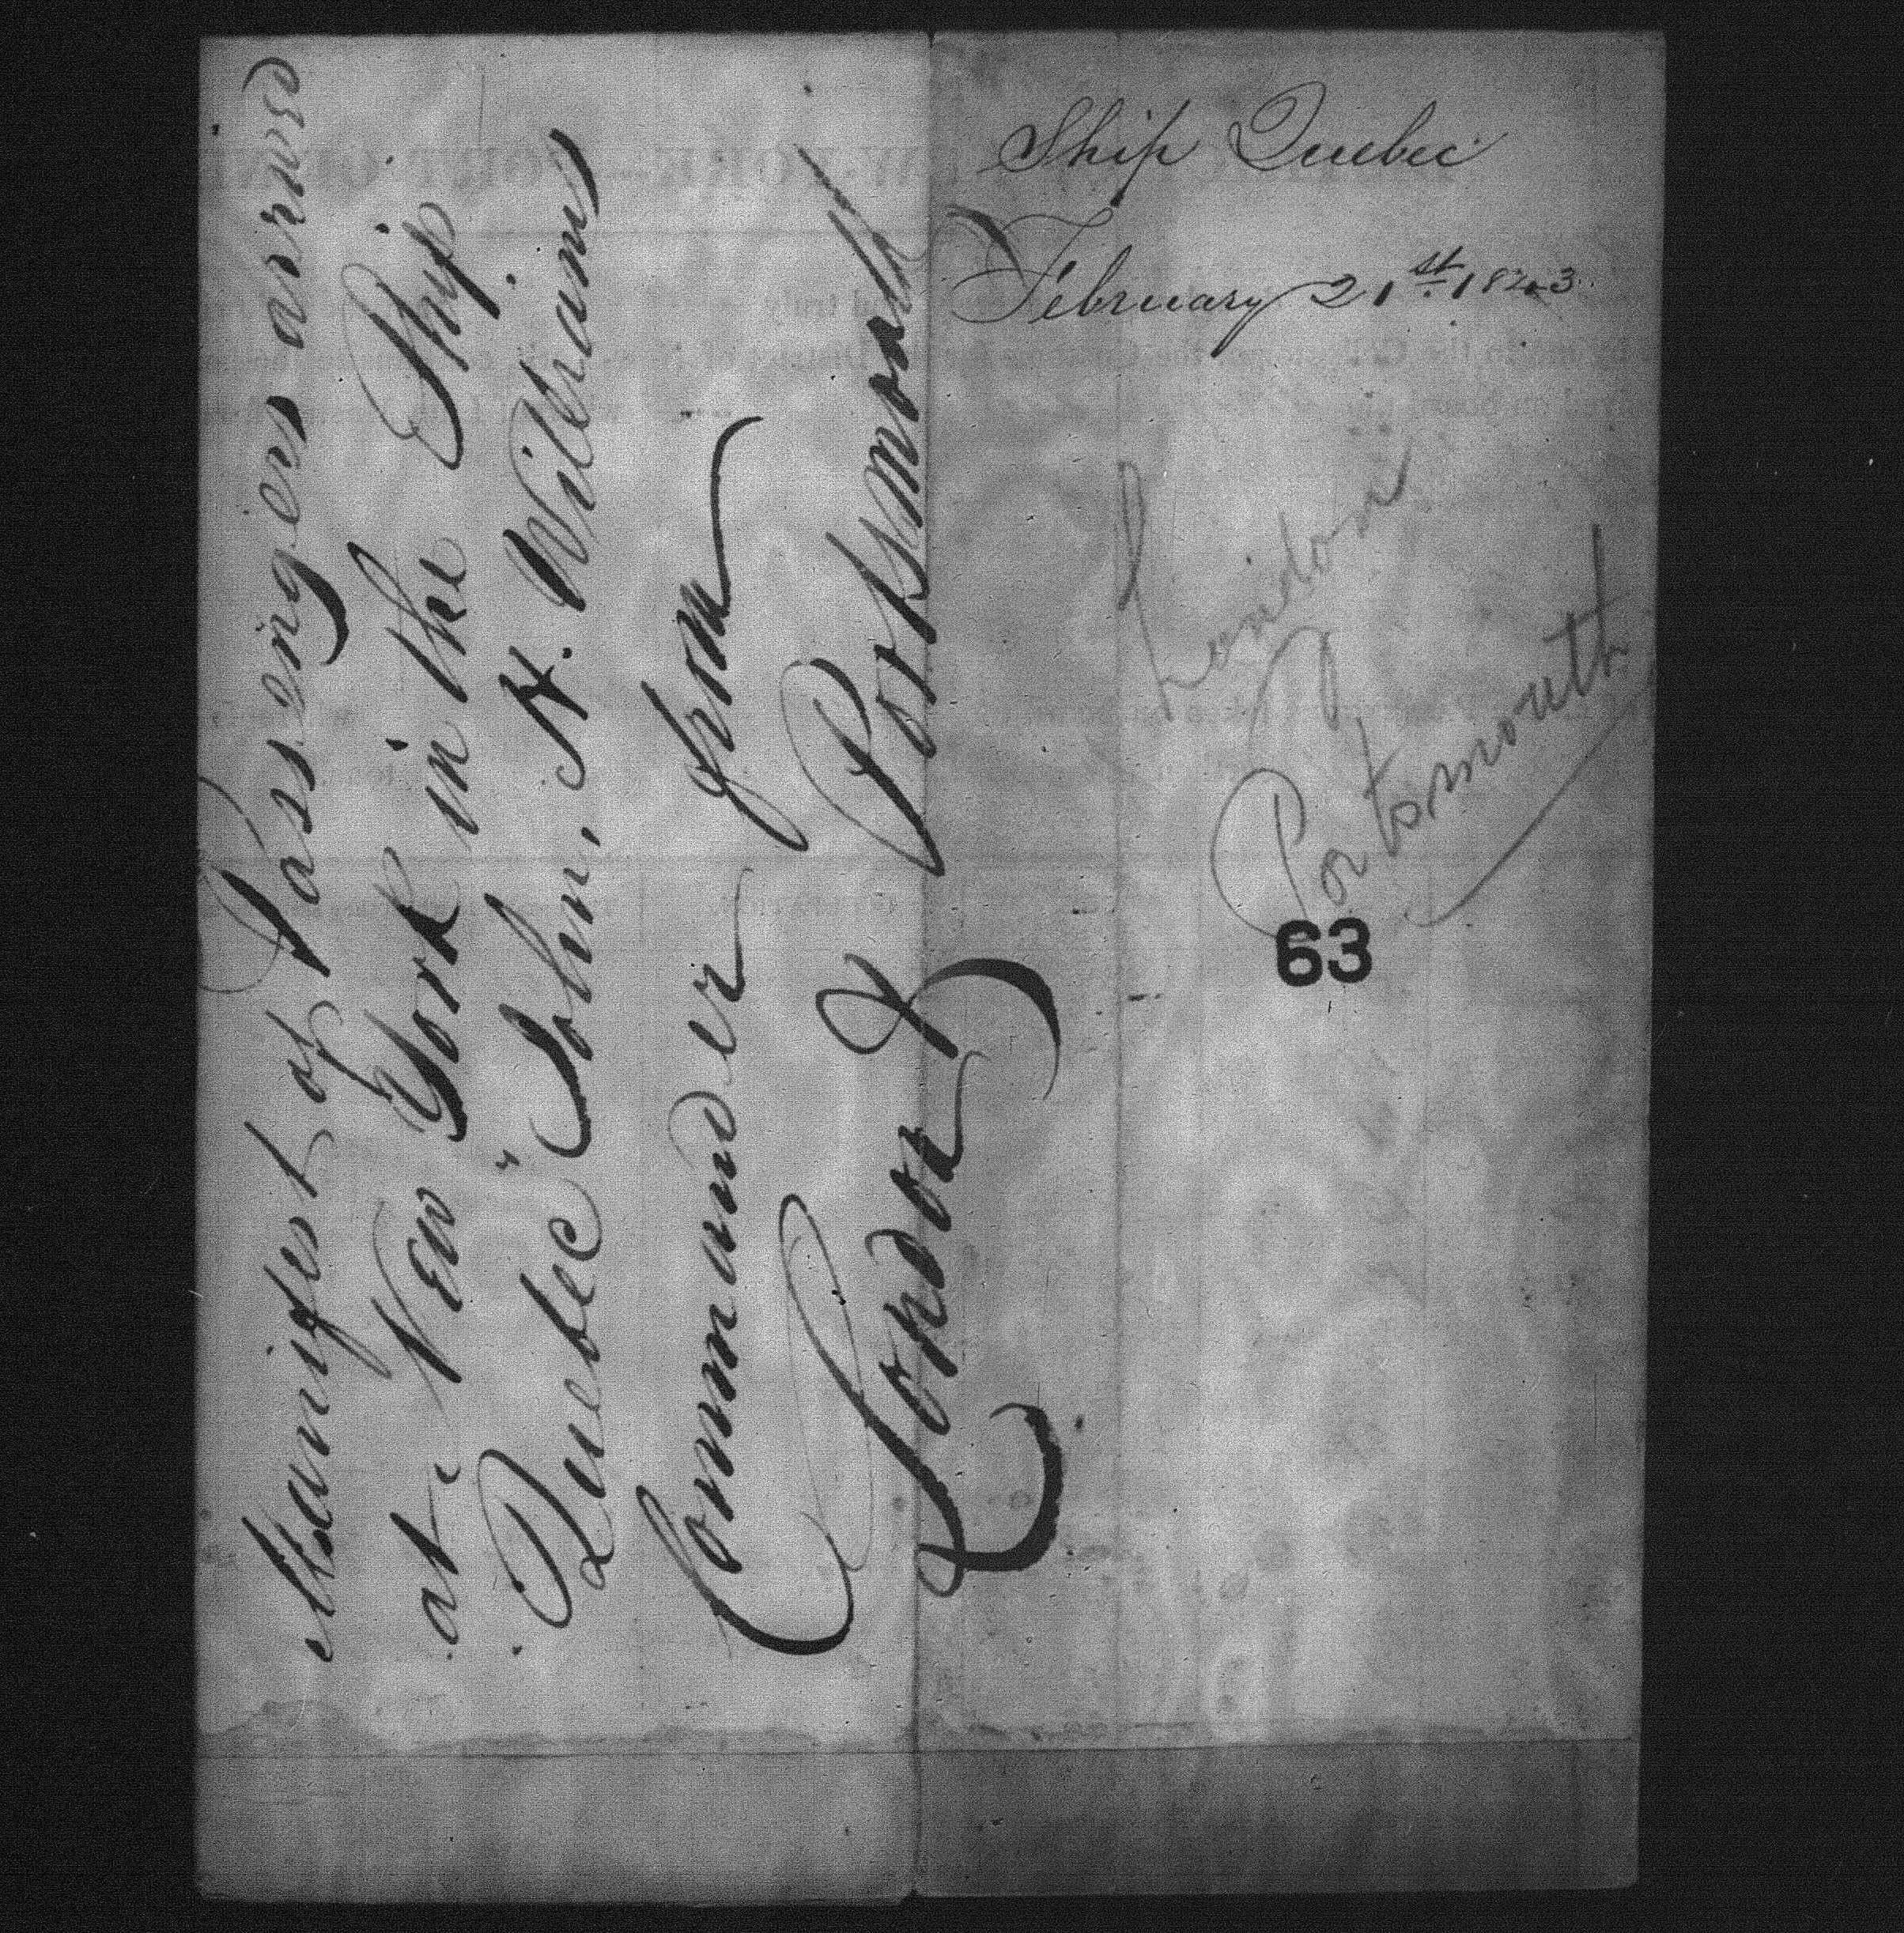 Manifest of Passengers arrived
at New York in the Ship
"Quebec" John, H. Williams
Commander from
London & Portsmouth
Ship Quebec
February 21st 1843
London
Portsmouth
63